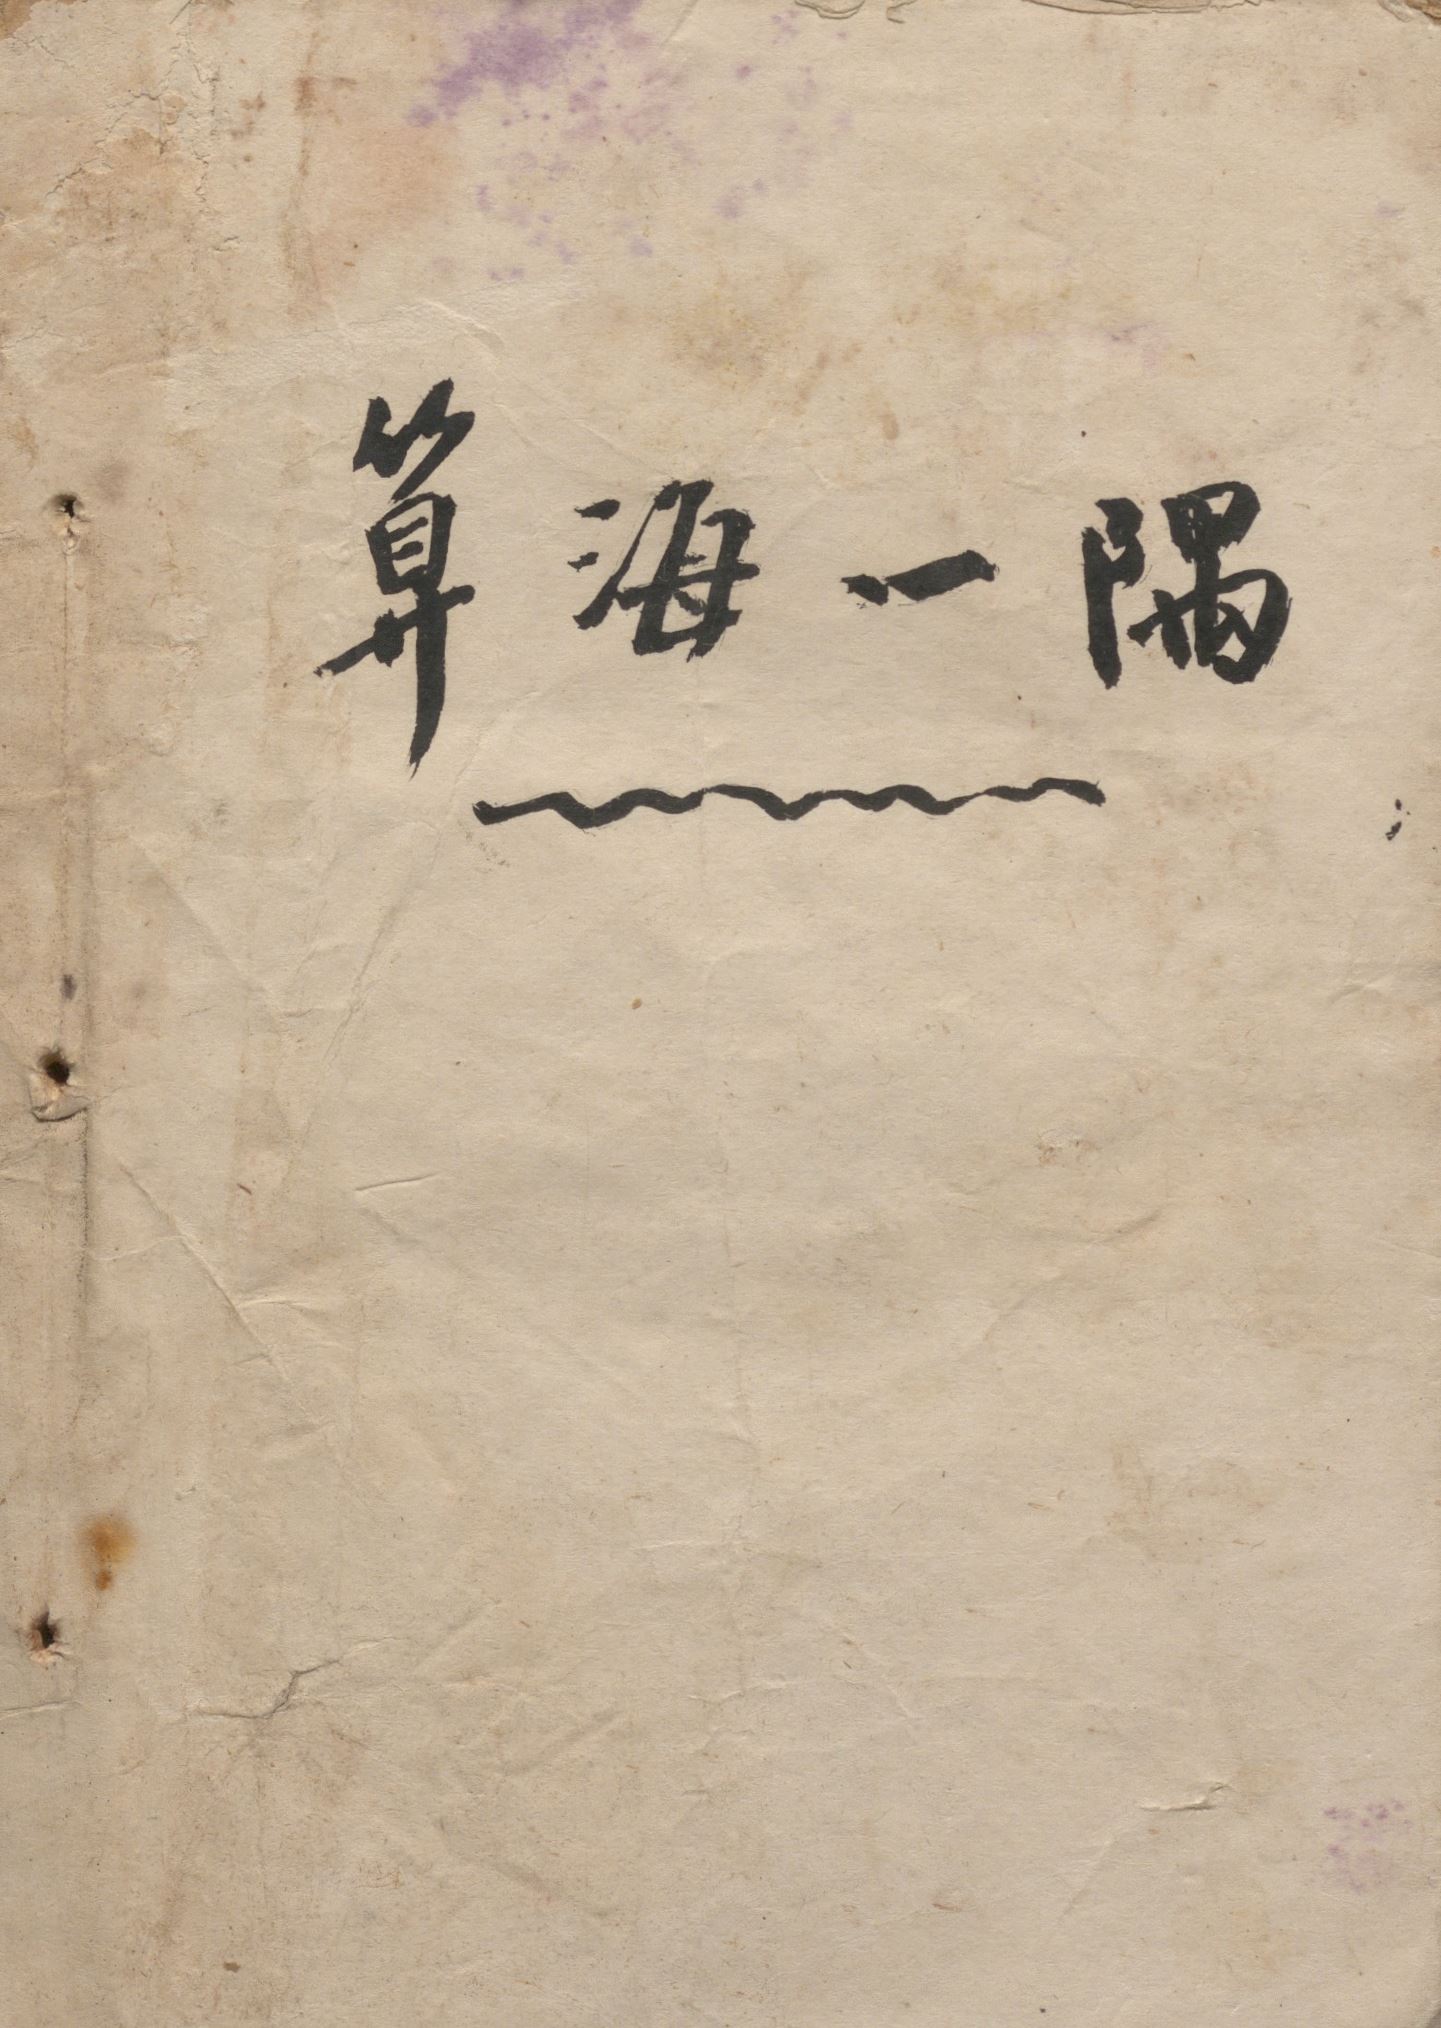 算海一隅